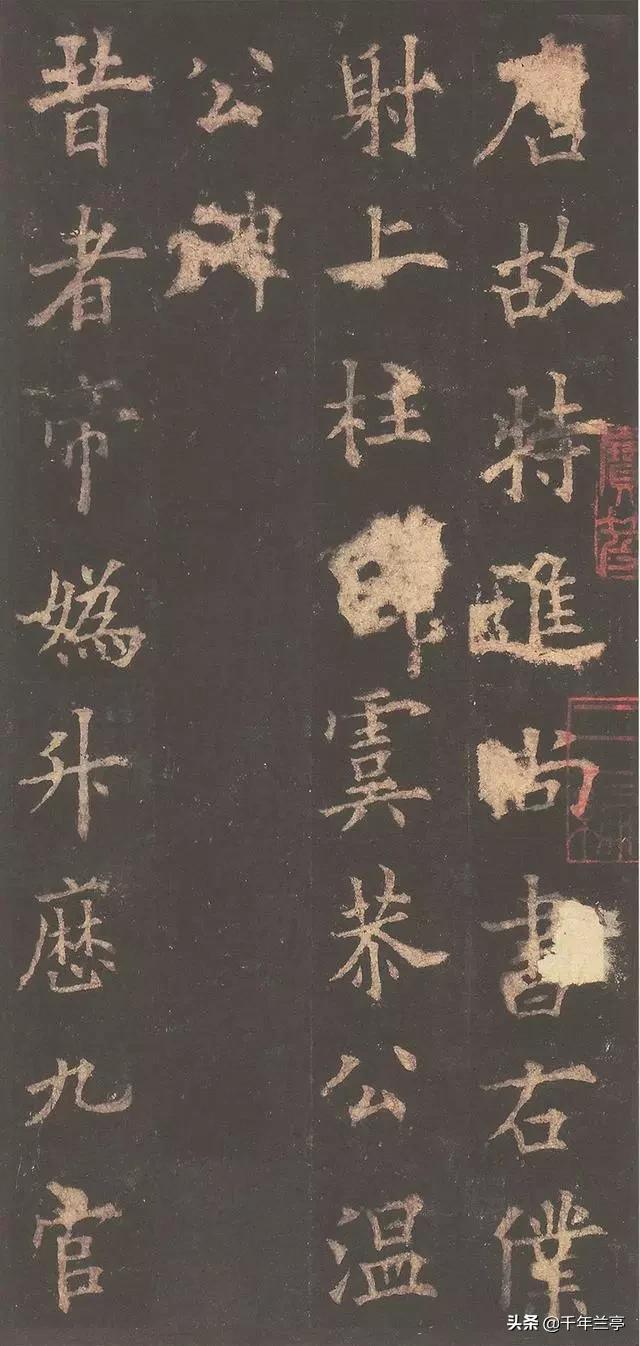 唐故特進尚書右僕
射上柱虞恭公温
公碑
昔者帝媯升歷九官
头条 @千年兰亭